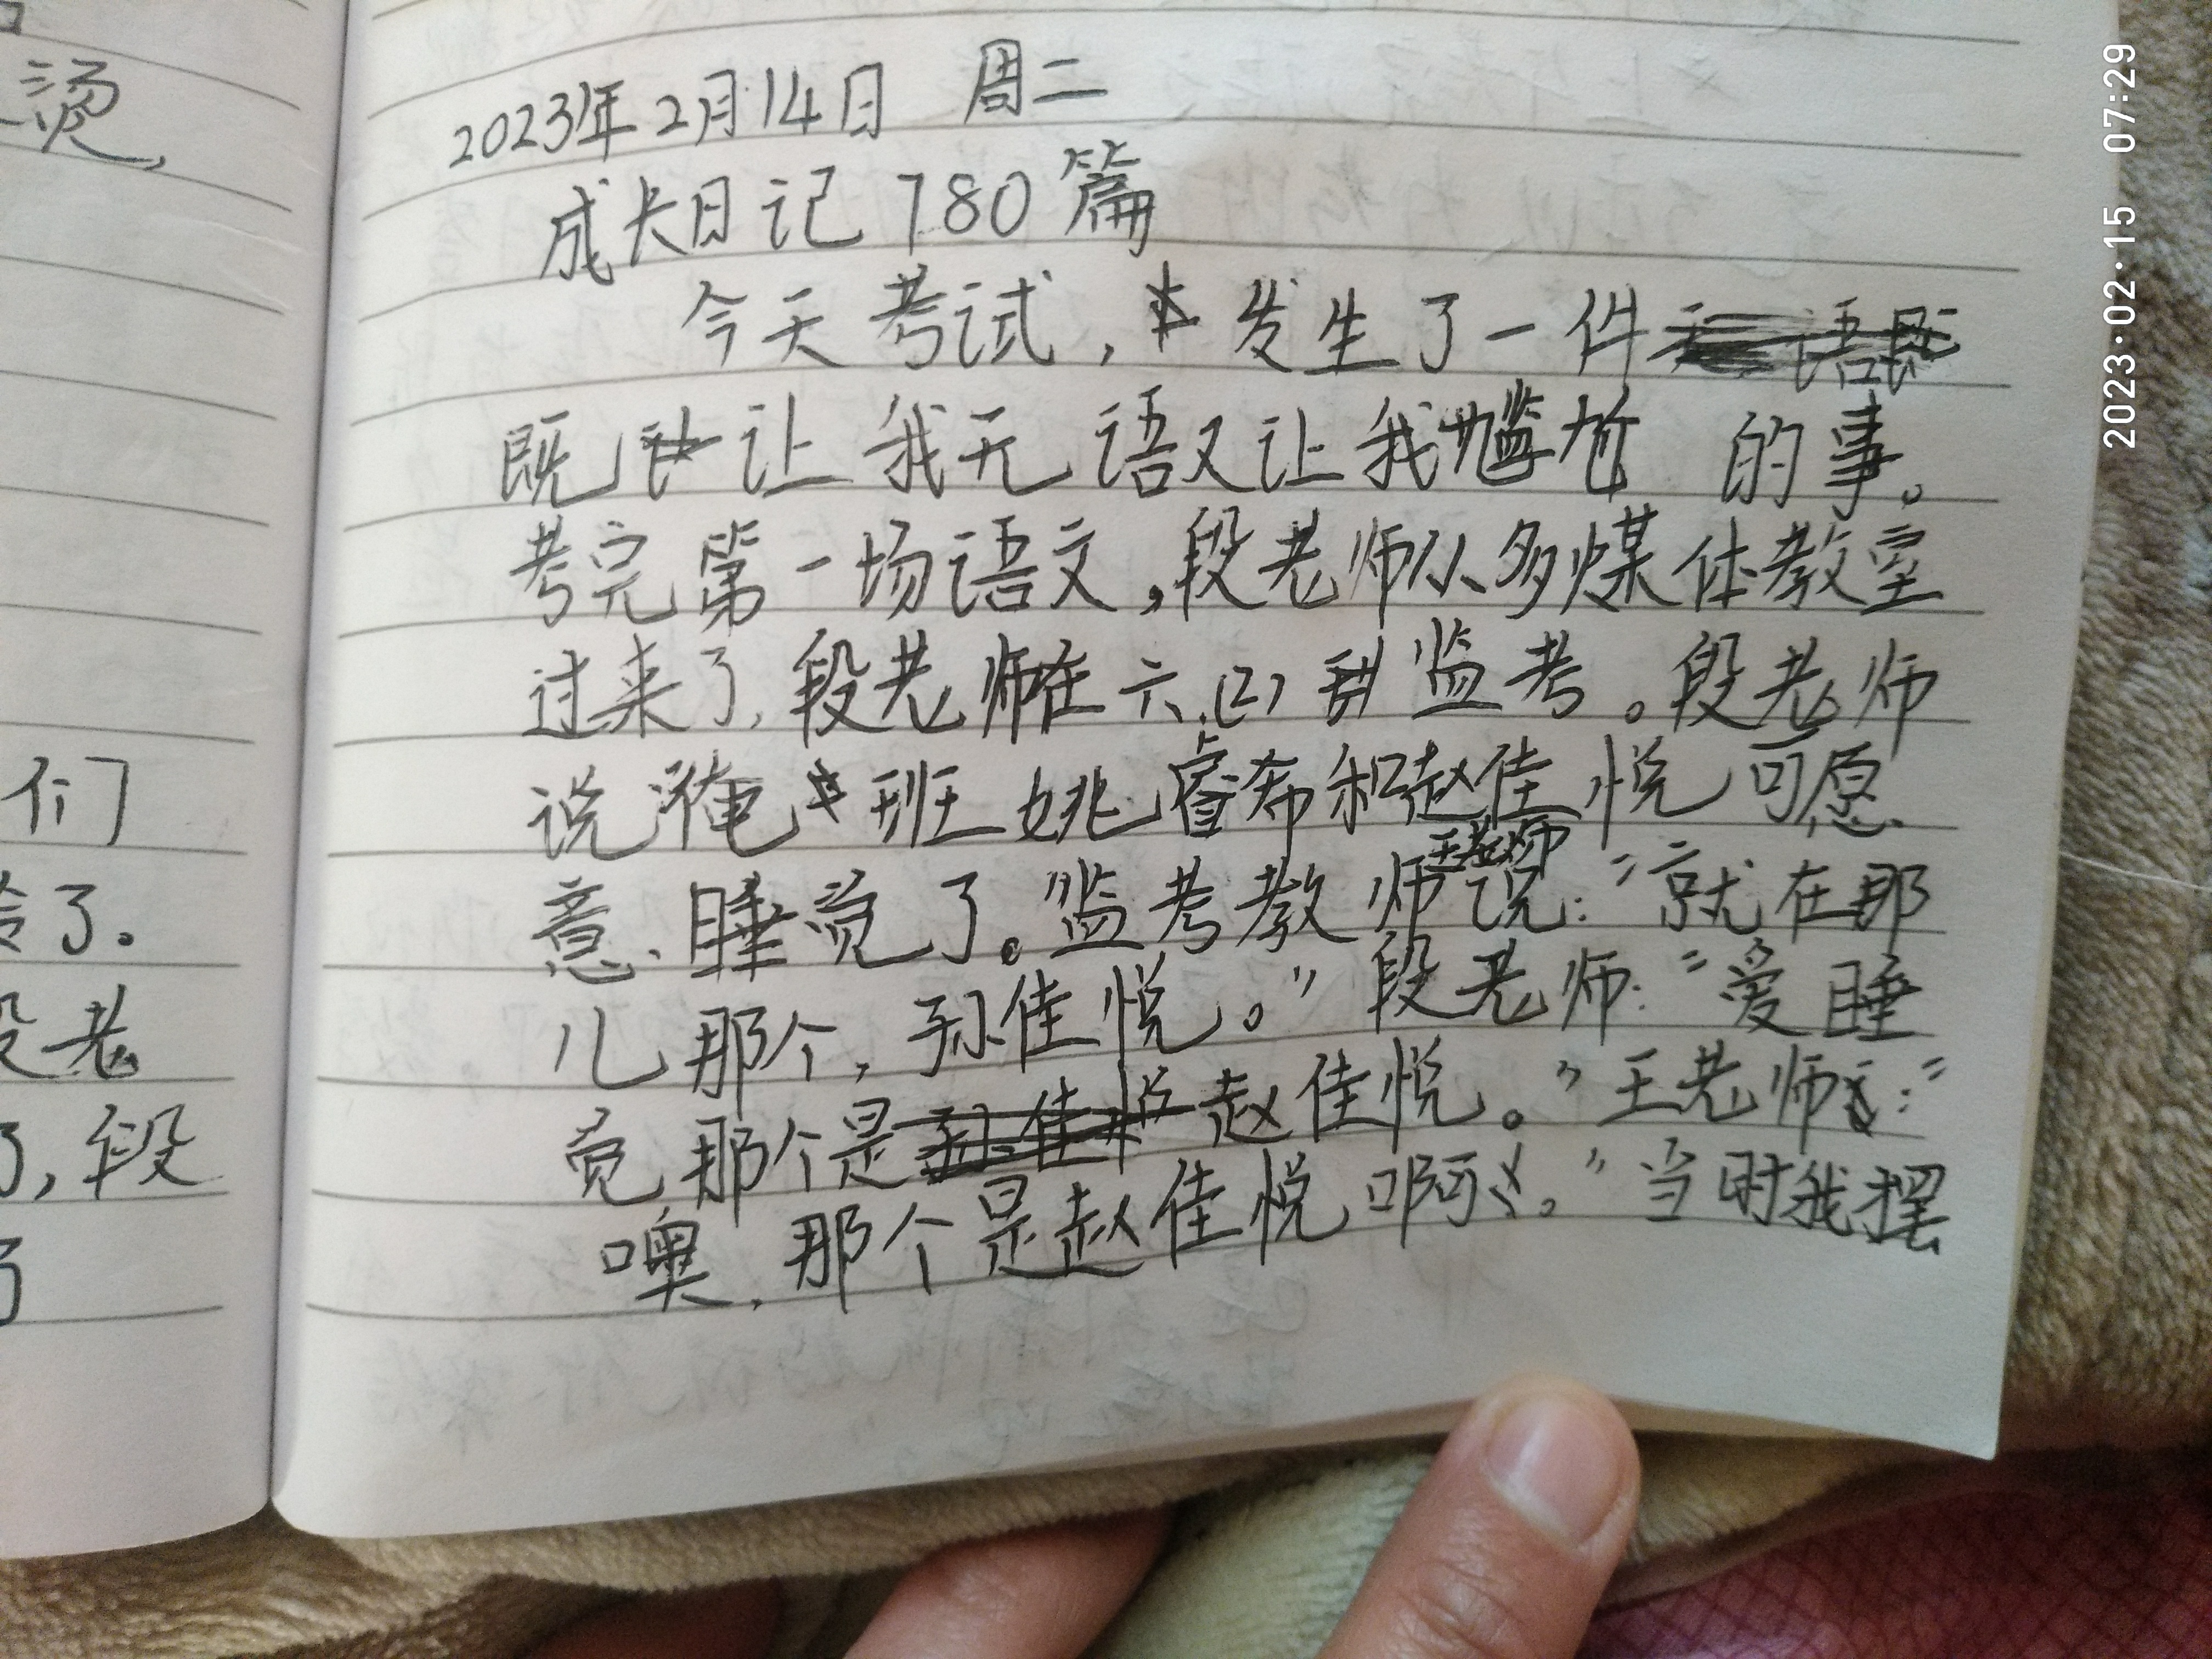 烫,
们
了.
老
,段
2023年2月14日 周二
成长日记780篇
今天考试,发生了一件
既让我无语又让我尴尬的事。
考完第一场语文,段老师从多煤体教室
过来了,段老师在六.(2)监考。段老师
说淹班姚睿布和赵佳悦可愿
意睡觉了。监考教师王老师说:“就在那
儿那个,孙佳悦。”段老师:“爱睡
觉那个是赵佳悦。”王老师:“
噢,那个是赵佳悦啊。”当时我摆
2023·02·15 07:29